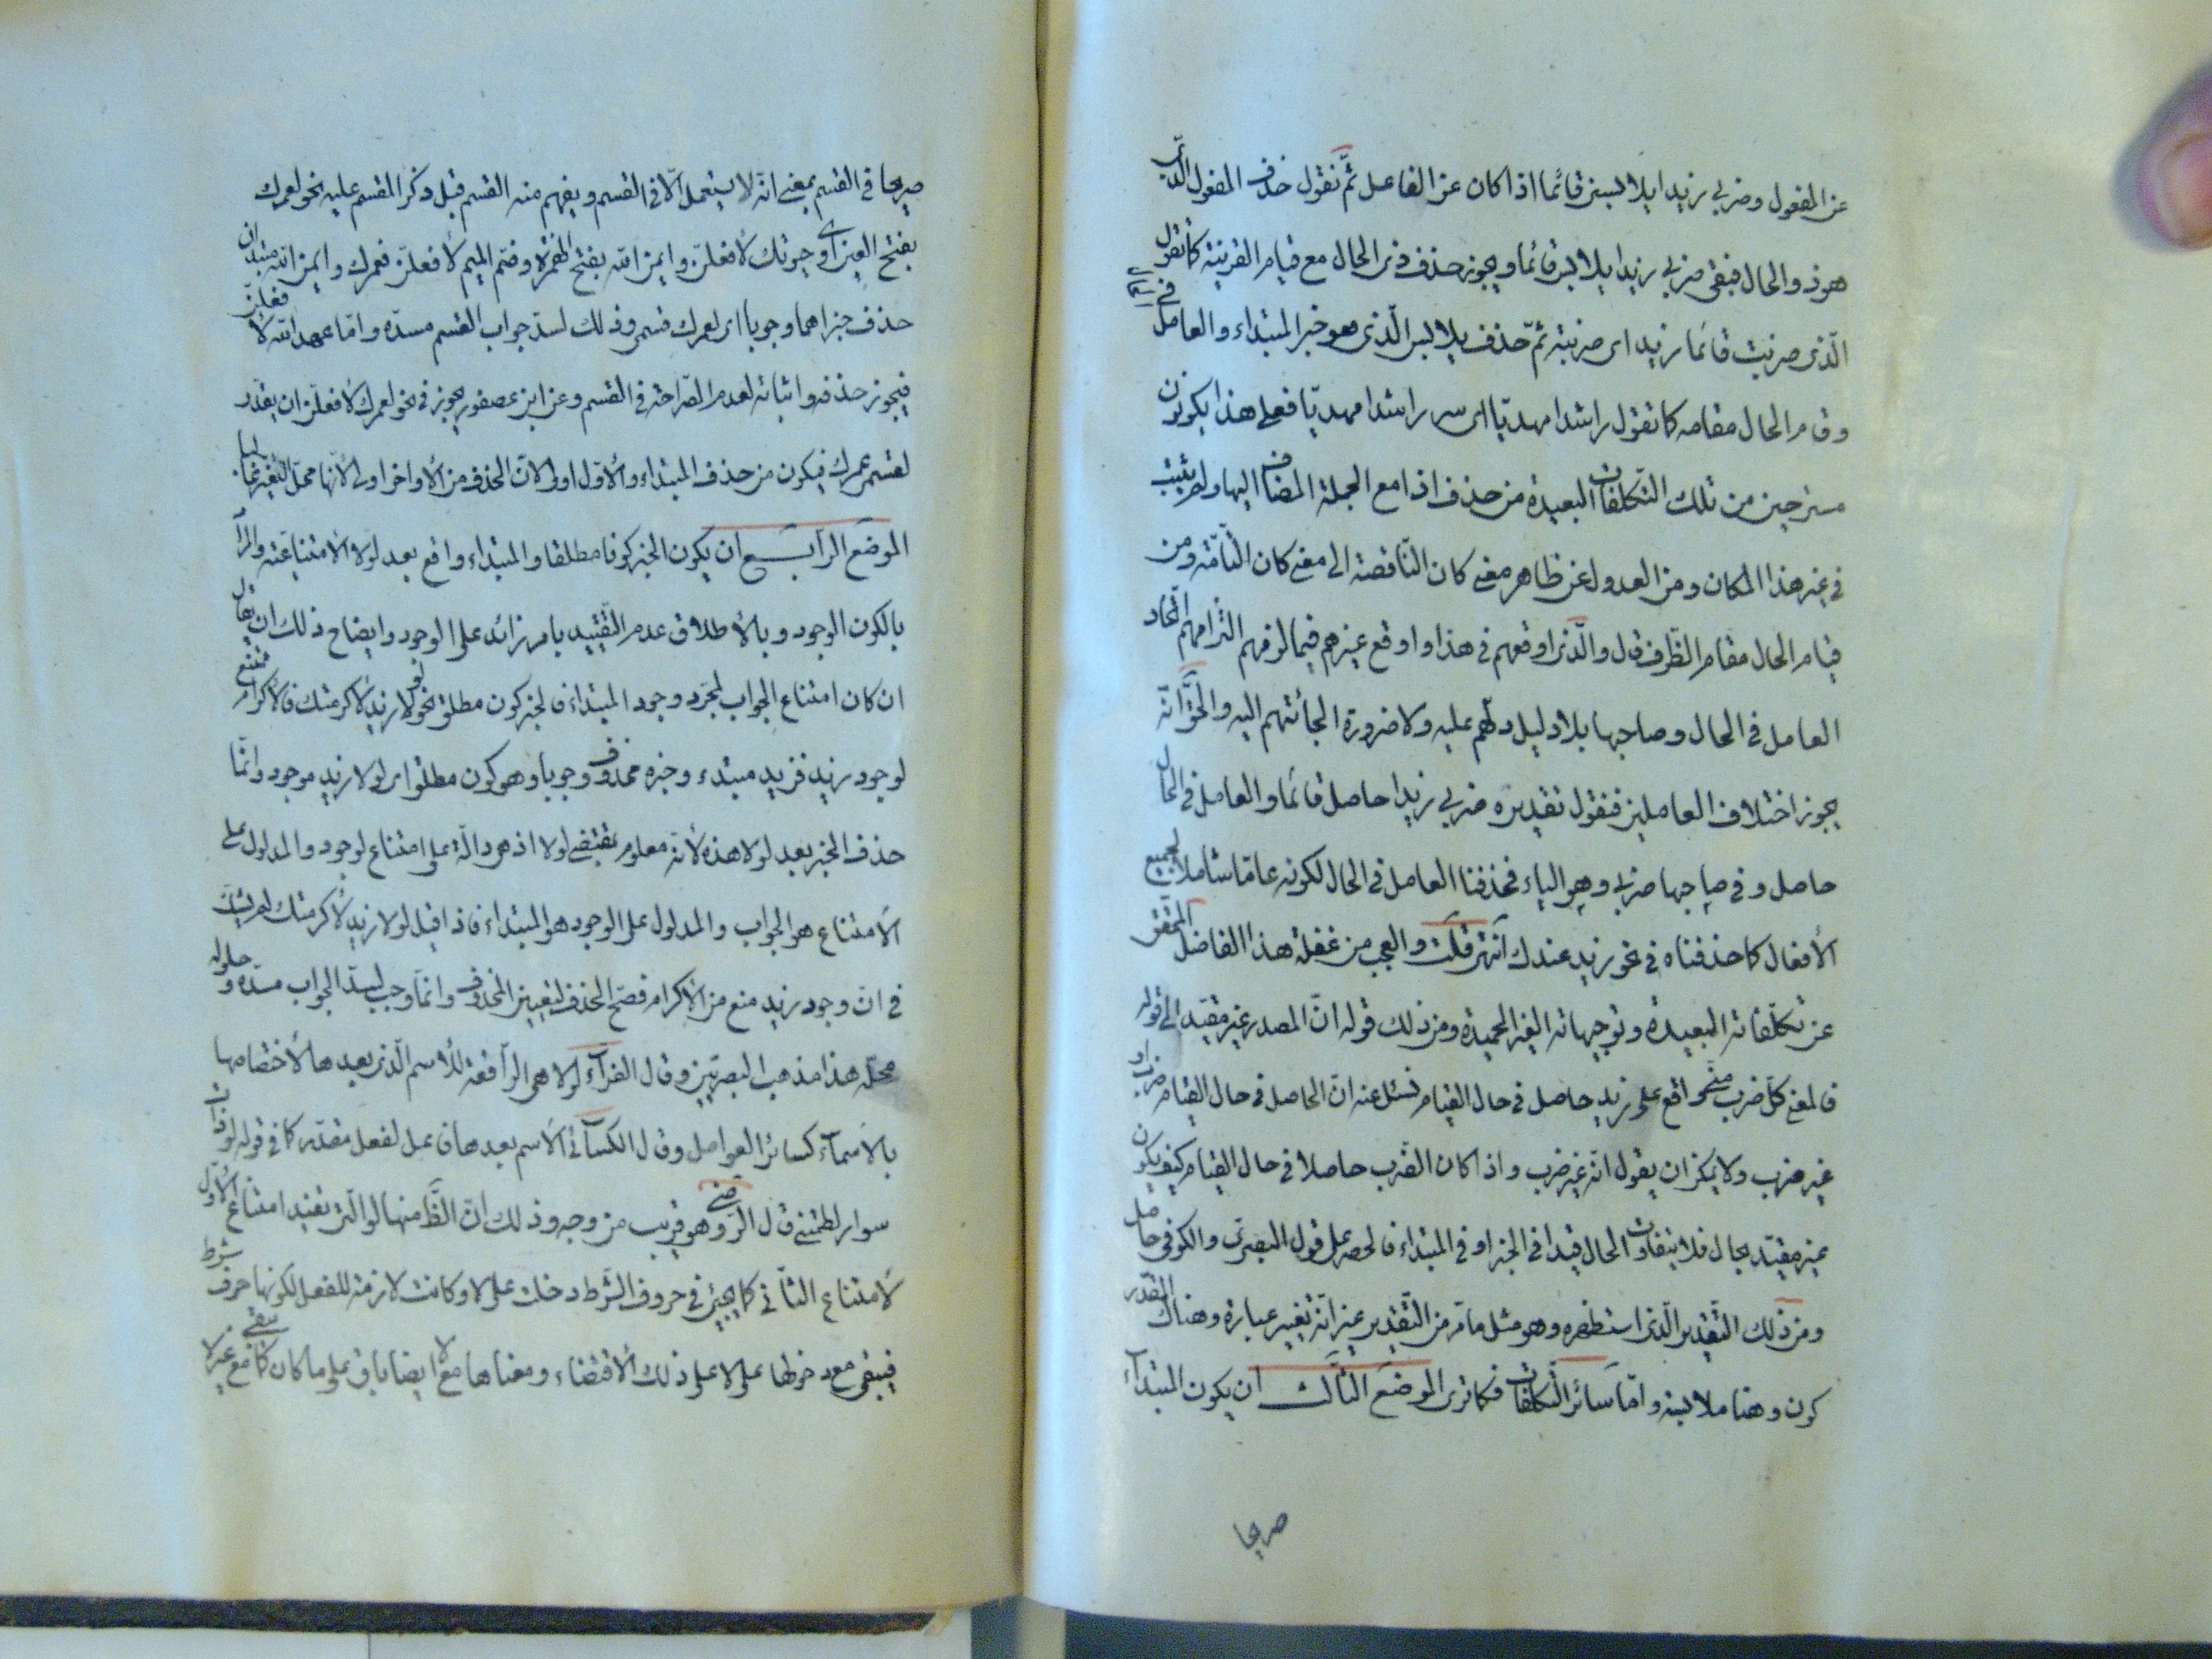 عن المفعول وضربي زيدا يلابسني قائما اذا كان عن الفاعل ثمّ نقول حذف المفعول الّذي
هو ذو الحال فبقي ضربي زيدا يلابس قائما ويجوز حذف ذي الحال مع قيام القرينة كما تقول
الّذي ضربت قائما زيد اي ضربته ثمّ حذف يلابس الّذي هو خبر المبتداء والعامل في الحال
وقام الحال مقامه كما تقول راشدا مهديّا اي سر راشدا مهديّا فعلي هذا يكونون
مسترحين من تلك التكلّفات البعيدة من حذف اذا مع الجملة المضاف اليها ولم يثبت
في غير هذا المكان ومن العدول عن ظاهر معني كان النّاقصة الي معني كان التّامّة ومن
قيام الحال مقام الظّرف قال والّذي اوقعهم في هذا واوقع غيرهم فيما لزمهم التزامهم اتّحاد
العامل في الحال وصاحبها بلا دليل دلّهم عليه ولا ضرورة الجأتهم اليه والحقّ انّه
يجوز اختلاف العاملين فنقول تقديره ضربي زيدا حاصل قائما والعامل في الحال
حاصل وفي صاحبها ضربي وهو الياء فحذفنا العامل في الحال لكونه عامّا شاملا لجميع
الأفعال كما حذفناه في نحو زيد عندك انتهي قلت والعجب من غفلة هذا الفاضل المحقّق
عن تكلّفاته البعيدة وتوجيهاته الغير الحميدة ومن ذلك قوله انّ المصدر غير مقيّد الي قوله
فالمعني كلّ ضرب منّي واقع علي زيد حاصل في حال القيام فنسئل عنه انّ الحاصل في حال القيام ضرب او
غير ضرب ولا يمكن ان يقول انّه غير ضرب واذا كان الضّرب حاصلا في حال القيام كيف يكون
غير مقيّد بحال فلا يتفاوت الحال قيدا في الخبر او في المبتداء فالحصر علي قول البصري والكوفي حاصل
ومن ذلك التّقدير الّذي استظهره وهو مثل ما مرّ من التّقدير غير انّه تغيير عبارة وهناك المقدّر
كون وهنا ملابسة وامّا سائر التّكلفات فكما تري الموضع الثّالث ان يكون المبتداء
صريحا
صريحا في القسم بمعني انّه لا يستعمل الّا في القسم ويفهم منه القسم قبل ذكر المقسم عليه نحو لعمرك
بفتح العين اي وحيوتك لأفعلنّ وايمن الله بفتح الهمزة وضمّ الميم لأفعلنّ فعمرك وايمن الله مبتدان
حذف خبراهما وجوبا اي لعمرك قسمي وذلك لسدّ جواب القسم مسدّه وامّا عهد الله لأفعلنّ
فيجوز حذفه واثباته لعدم الصّراحة في القسم وعن ابن عصفور يجوز في نحو لعمرك لأفعلنّ ان يقدّر
لقسمي عمرك فيكون من حذف المبتداء والأوّل اولي لانّ الحذف من الأواخر اولي لأنّها محلّ التّغيير غالبا
الموضع الرّابع ان يكون الخبر كونا مطلقا والمبتداء واقع بعد لولا الامتناعيّة والمراد
بالكون الوجود وبالأطلاق عدم التّقييد بامر زائد علي الوجود وايضاح ذلك ان يقال
ان كان امتناع الجواب لمجرّد وجود المبتداء فالخبر كون مطلق نحو لولا زيد لأكرمتك فالأكرام ممتنع
لوجود زيد فزيد مبتدء وخبره محذوف وجوبا وهو كون مطلق اي لولا زيد موجود وانّما
حذف الخبر بعد لولا هذه لأنّه معلوم بمقتضي لولا اذ هي دالّة علي امتناع لوجود والمدلول علي
الأمتناع هو الجواب والمدلول علي الوجود هو المبتداء فاذا قيل لولا زيد لأكرمتك لم يشكّ
في انّ وجود زيد منع من الأكرام فصحّ الحذف لتعيين المحذوف وانّما وجب لسدّ الجواب مسدّه وحلوله
محلّه هذا مذهب البصريّين وقال الفرّاء لولا هي الرّافعة للأسم الّذي بعدها لأختصاصها
بالأسماء كسائر العوامل وقال الكسائي الأسم بعدها فاعل لفعل مقدّر كما في قوله لو ذات
سوار لطمتني قال الرّضي وهو قريب من وجه وذلك انّ الظّ منها لو الّتي تفيد امتناع الأوّل
لأمتناع الثّاني كما يجيئ في حروف الشّرط دخلت علي لا وكانت لازمة للفعل لكونها حرف شرط
فيبقي مع دخولها علي لا علي ذلك الأقتضاء ومعناها مع لا ايضا باق علي ما كان كما تبقي مع غير لا